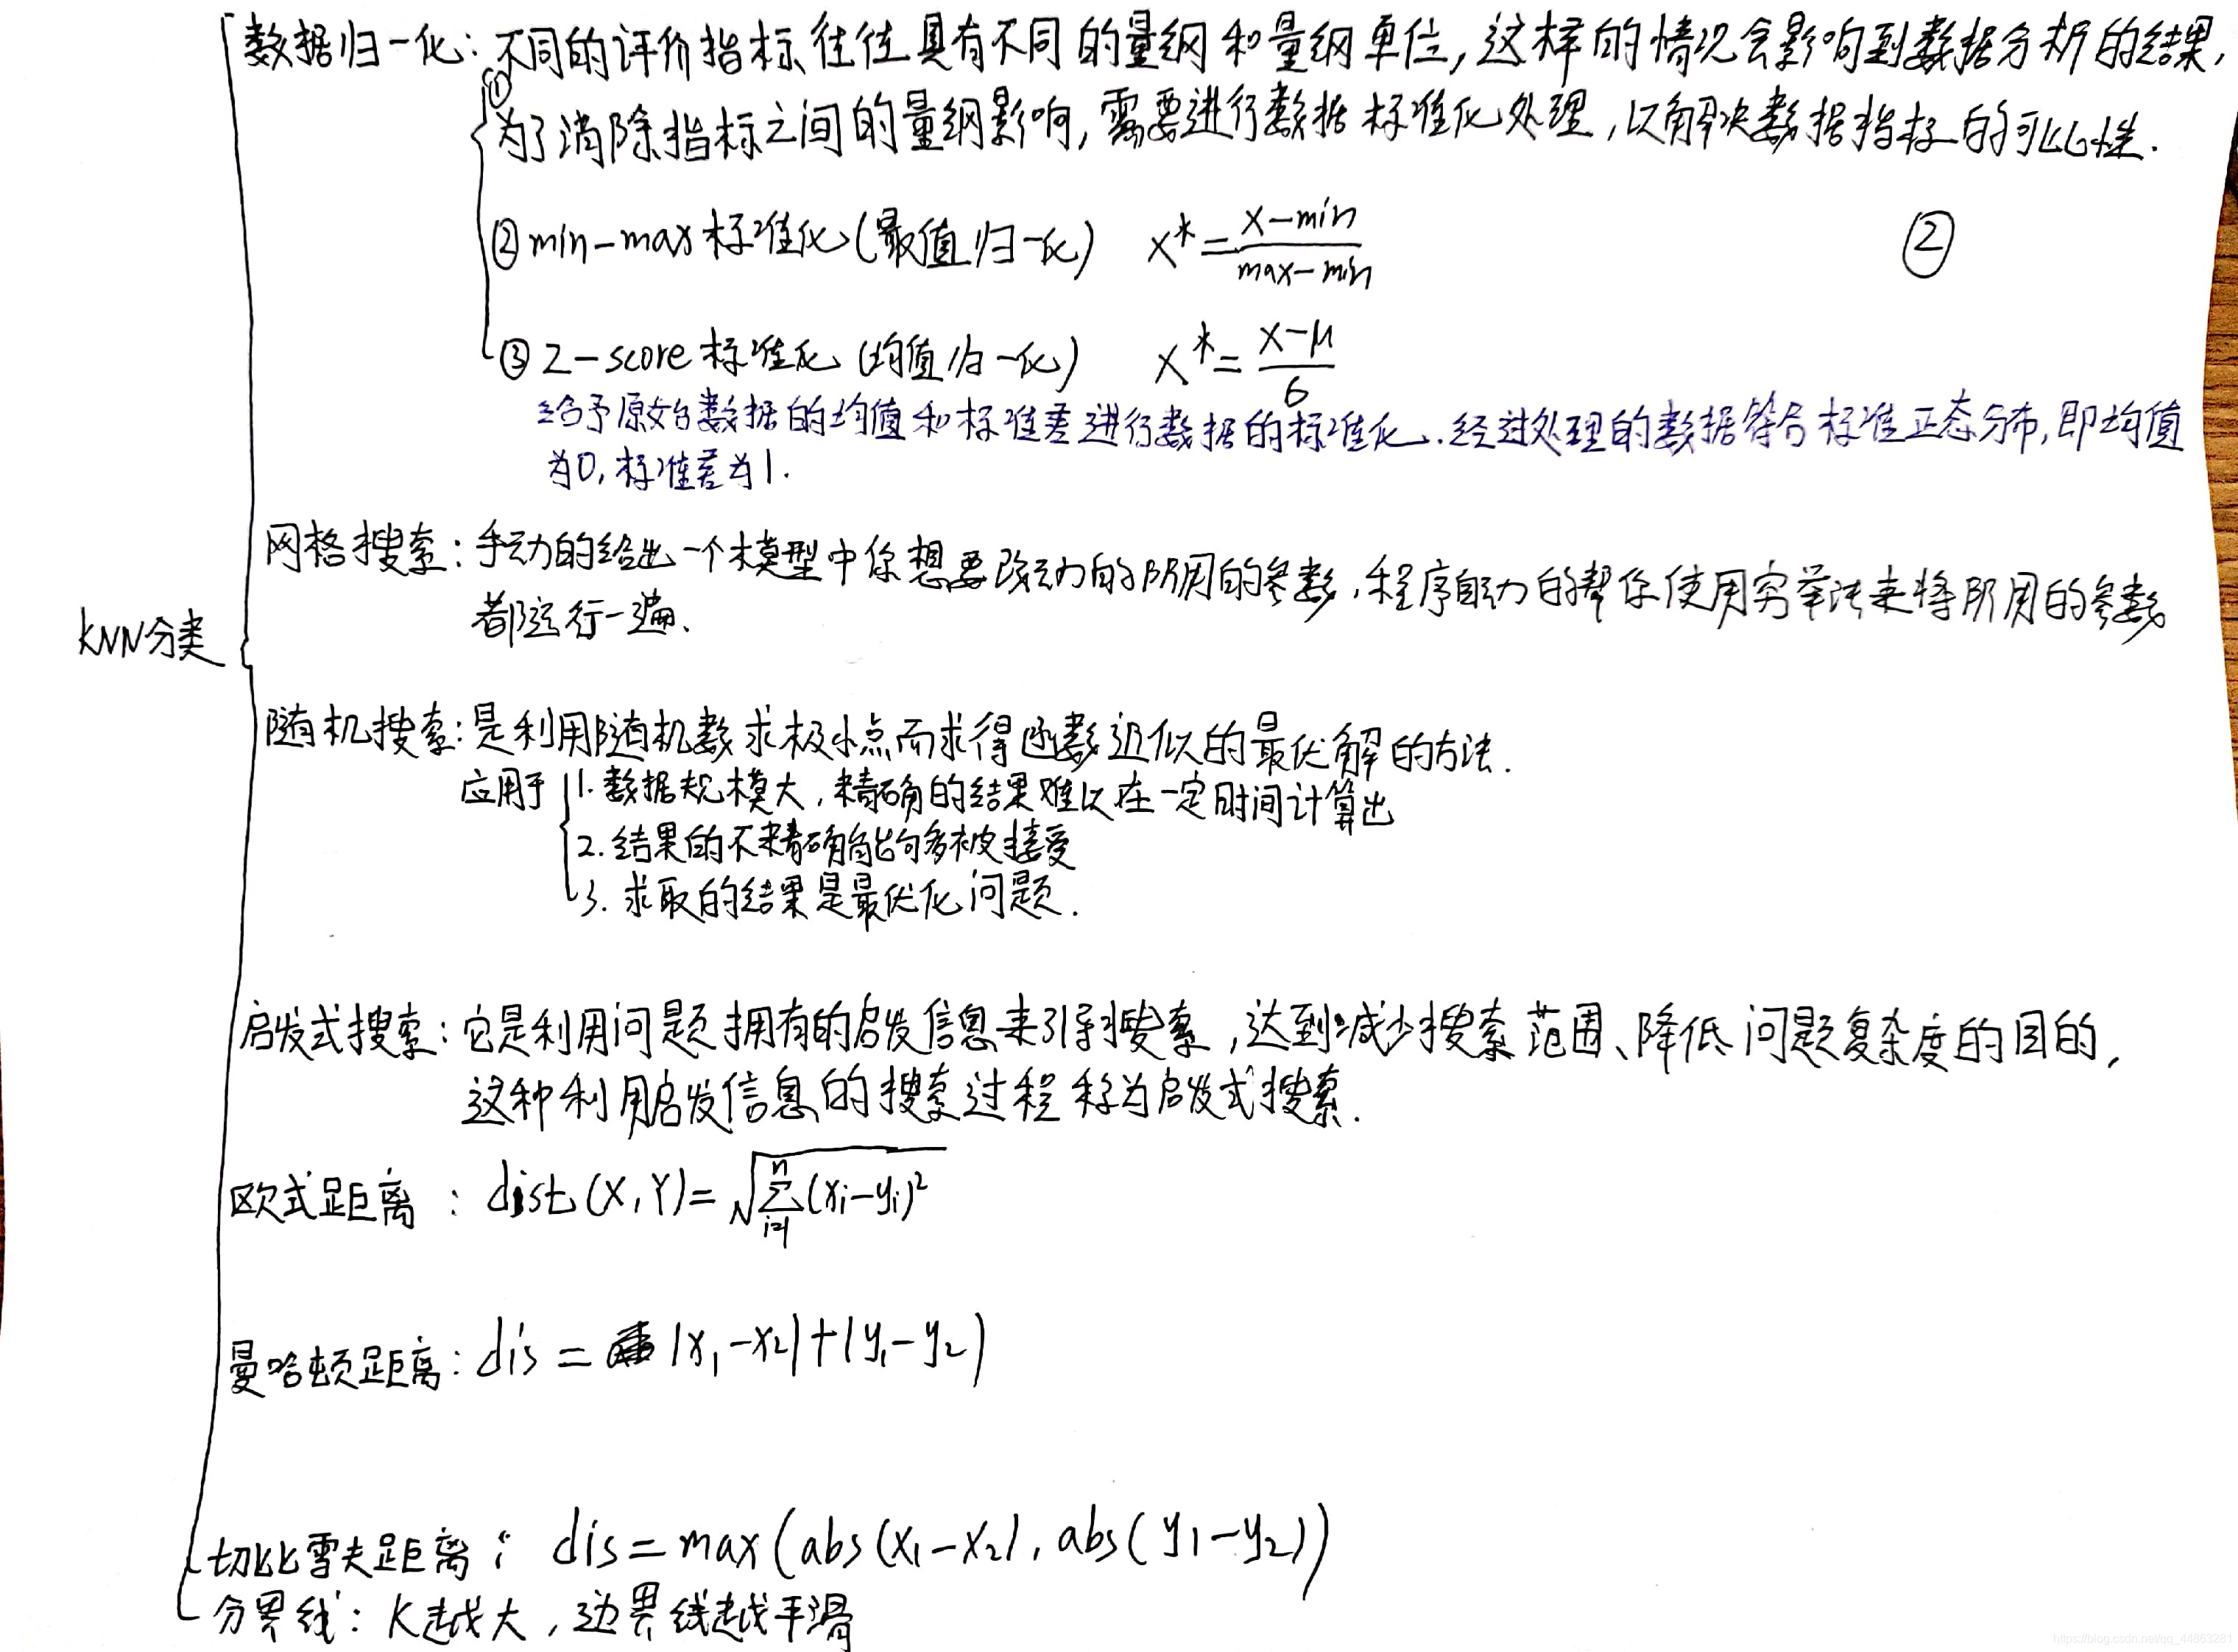 数据归一化：不同的评价指标往往具有不同的量纲和量纲单位,这样的情况会影响到数据分析的结果,
①
为了消除指标之间的量纲影响,需要进行数据标准化处理,以解决数据指标的可比性.
②min-max标准化(最值归一化) x*=(x-min)/(max-min)
②
③Z-score标准化(均值归一化) x*=(x-μ)/6
给予原始数据的均值和标准差进行数据的标准化.经过处理的数据符合标准正态分布,即均值
为0,标准差为1.
网格搜索：手动的给出一个模型中你想要改动的所用的参数,程序自动的帮你使用穷举法来将所用的参数
都运行一遍、
KNN分类
随机搜索：是利用随机数求极小点而求得函数近似的最优解的方法.
应用于 1.数据规模大,精确的结果难以在一定时间计算出
2.结果的不精确能够被接受
3.求取的结果是最优化问题.
启发式搜索：它是利用问题拥有的启发信息来引导搜索,达到减少搜索范围、降低问题复杂度的目的,
这种利用启发信息的搜索过程称为启发式搜索.
欧式距离：dist(X,Y)=√∑ⁿᵢ₌₁(xᵢ-yᵢ)²
曼哈顿距离：dis=|x₁-x₂|+|y₁-y₂|
切比雪夫距离：dis=max(abs(x₁-x₂),abs(y₁-y₂))
分界线：K越大,边界线越平滑
https://blog.csdn.net/qq_44863281